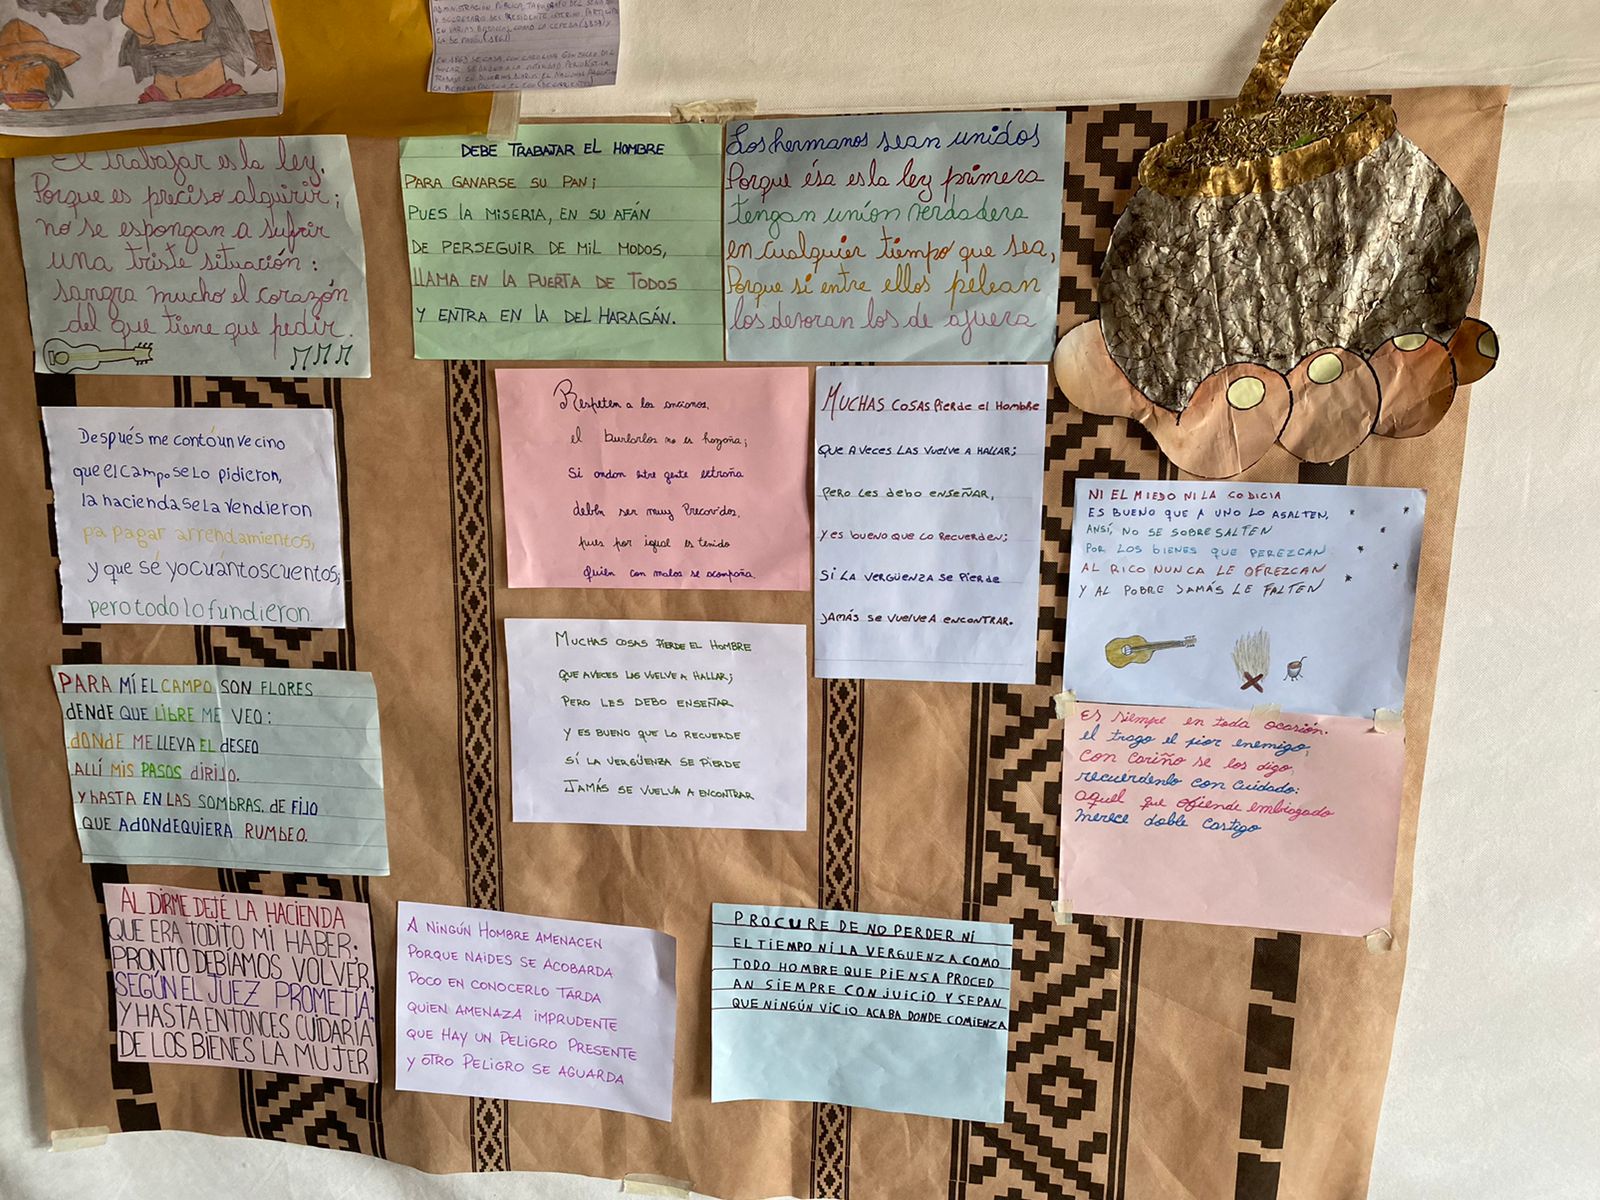 ADMINISTRACIÓN PÚBLICA, TAQUÍGRAFO DEL SENADO
Y SECRETARIO DEL PRESIDENTE INTERINO. PARTICIPÓ
EN VARIAS BATALLAS, COMO LA CEPEDA (1859) Y
LA DE PAVÓN (1861)
EN 1863 SE CASA, CON CAROLINA GONZALEZ DEL
SOLAR SE DEDICÓ A LA ACTIVIDAD PERIODÍSTICA
TRABAJÓ EN DIVERSOS DIARIOS: EL NACIONAL ARGENTINO
El trabajar es la ley,
Porque es preciso alquirir;
no se espongan a sufrir
una triste situación:
sangra mucho el corazón
del que tiene que pedir.
DEBE TRABAJAR EL HOMBRE
PARA GANARSE SU PAN;
PUES LA MISERIA, EN SU AFÁN
DE PERSEGUIR DE MIL MODOS,
LLAMA EN LA PUERTA DE TODOS
Y ENTRA EN LA DEL HARAGÁN.
Los hermanos sean unidos
Porque ésa es la ley primera
tengan unión verdadera
en cualquier tiempo que sea,
Porque si entre ellos pelean
los devoran los de ajuera
Después me contó un vecino
que el campo se lo pidieron,
la hacienda se la vendieron
pa pagar arrendamientos,
y que sé yo cuántos cuentos;
pero todo lo fundieron.
Respeten a los ancianos,
el burlarlos no es hazaña;
Si andan entre gente extraña
deben ser muy Precavidos,
pues por igual es tenido
quien con malos se acompaña.
MUCHAS COSAS Pierde el Hombre
QUE A VECES LAS VUELVE A HALLAR;
PERO LES DEBO ENSEÑAR,
Y ES BUENO QUE LO RECUERDEN;
SI LA VERGÜENZA SE PIERDE
JAMÁS SE VUELVE A ENCONTRAR.
NI EL MIEDO NI LA CODICIA
ES BUENO QUE A UNO LO ASALTEN,
ANSÍ, NO SE SOBRESALTEN
POR LOS BIENES QUE PEREZCAN
AL RICO NUNCA LE OFREZCAN
Y AL POBRE JAMÁS LE FALTEN
MUCHAS COSAS PIERDE EL HOMBRE
QUE AVECES LAS VUELVE A HALLAR;
PERO LES DEBO ENSEÑAR
Y ES BUENO QUE LO RECUERDE
SÍ LA VERGÜENZA SE PIERDE
JAMÁS SE VUELVA A ENCONTRAR
PARA MÍ EL CAMPO SON FLORES
DENDE QUE LIBRE ME VEO:
DONDE ME LLEVA EL DESEO
ALLÍ MIS PASOS DIRIJO.
Y HASTA EN LAS SOMBRAS, DE FIJO
QUE ADONDEQUIERA RUMBEO.
Es siempre en toda ocasión.
el trago el pior enemigo;
con cariño se los digo,
recuérdenlo con cuidado:
aquel que ofiende embriagado
merece doble castigo
AL DIRME DEJÉ LA HACIENDA
QUE ERA TODITO MI HABER;
PRONTO DEBÍAMOS VOLVER,
SEGÚN EL JUEZ PROMETÍA,
Y HASTA ENTONCES CUIDARÍA
DE LOS BIENES LA MUJER
A NINGÚN HOMBRE AMENACEN
PORQUE NAIDES SE ACOBARDA
POCO EN CONOCERLO TARDA
QUIEN AMENAZA IMPRUDENTE
QUE HAY UN PELIGRO PRESENTE
Y OTRO PELIGRO SE AGUARDA
PROCURE DE NO PERDER NI
EL TIEMPO NI LA VERGUENZA COMO
TODO HOMBRE QUE PIENSA PROCED
AN SIEMPRE CON JUICIO Y SEPAN
QUE NINGÚN VICIO ACABA DONDE COMIENZA